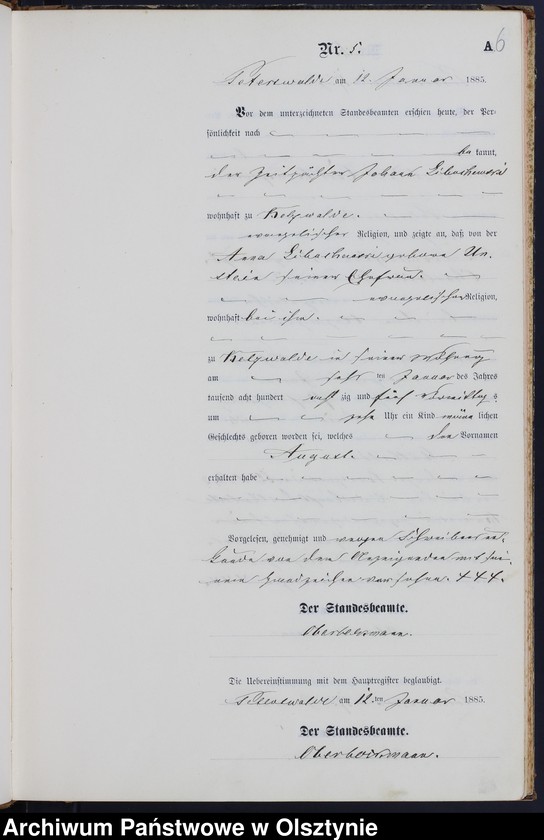 Nr. 5.
A 6
Peterswalde am 12. Januar 1885.
Vor dem unterzeichneten Standesbeamten erschien heute, der Per-
sönlichkeit nach
be kannt,
der Zeitpächter Johann
wohnhaft zu
evangelischer Religion, und zeigte an, daß von der
Anna geborene Un-
stein seiner Ehefrau.
evangelischer Religion,
wohnhaft bei ihm.
zu in seiner Wohnung
am sechs ten Januar des Jahres
tausend acht hundert acht zig und fünf Vormittags
um zehn Uhr ein Kind männ lichen
Geschlechts geboren worden sei, welches den Vornamen
August.
erhalten habe
Vorgelesen, genehmigt und wegen Schreibensun-
kunde von dem Anzeigenden mit sei-
nem Handzeichen versehen. +++.
Der Standesbeamte.
Oberbossmann.
Die Uebereinstimmung mit dem Hauptregister beglaubigt.
Peterswalde am 12. ten Januar 1885.
Der Standesbeamte.
Archiwum Państwowe w Olsztynie